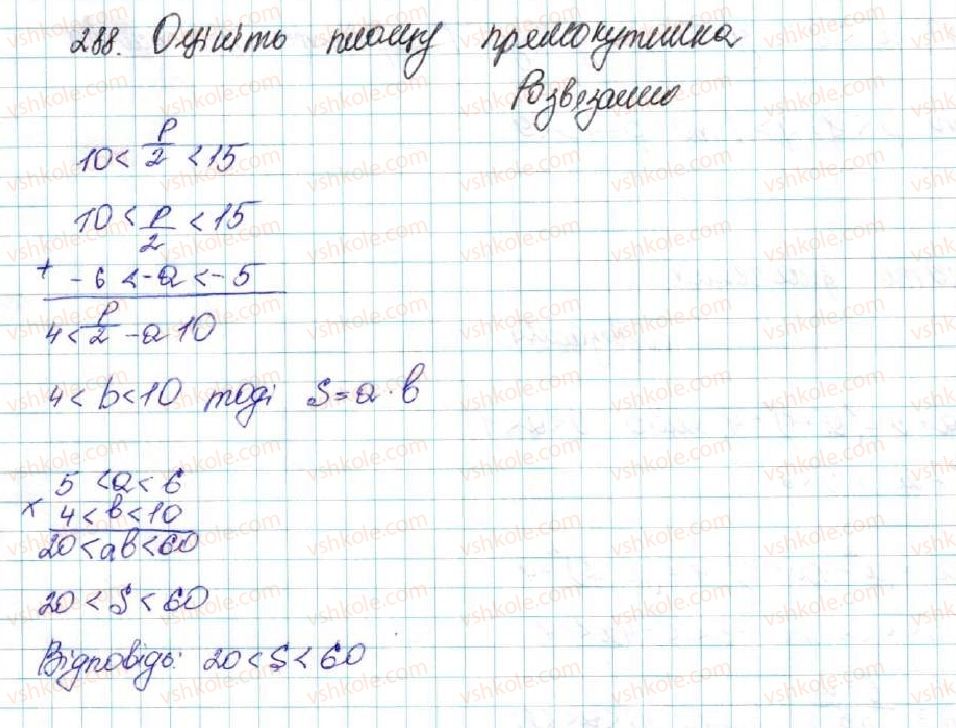 288. Оцініть площу прямокутника
Розвязання
10 < P/2 < 15
10 < P/2 < 15
+ -6 < -a < -5
4 < P/2 - a 10
4 < b < 10 тоді S = a · b
5 < a < 6
× 4 < b < 10
20 < ab < 60
20 < S < 60
Відповідь: 20 < S < 60